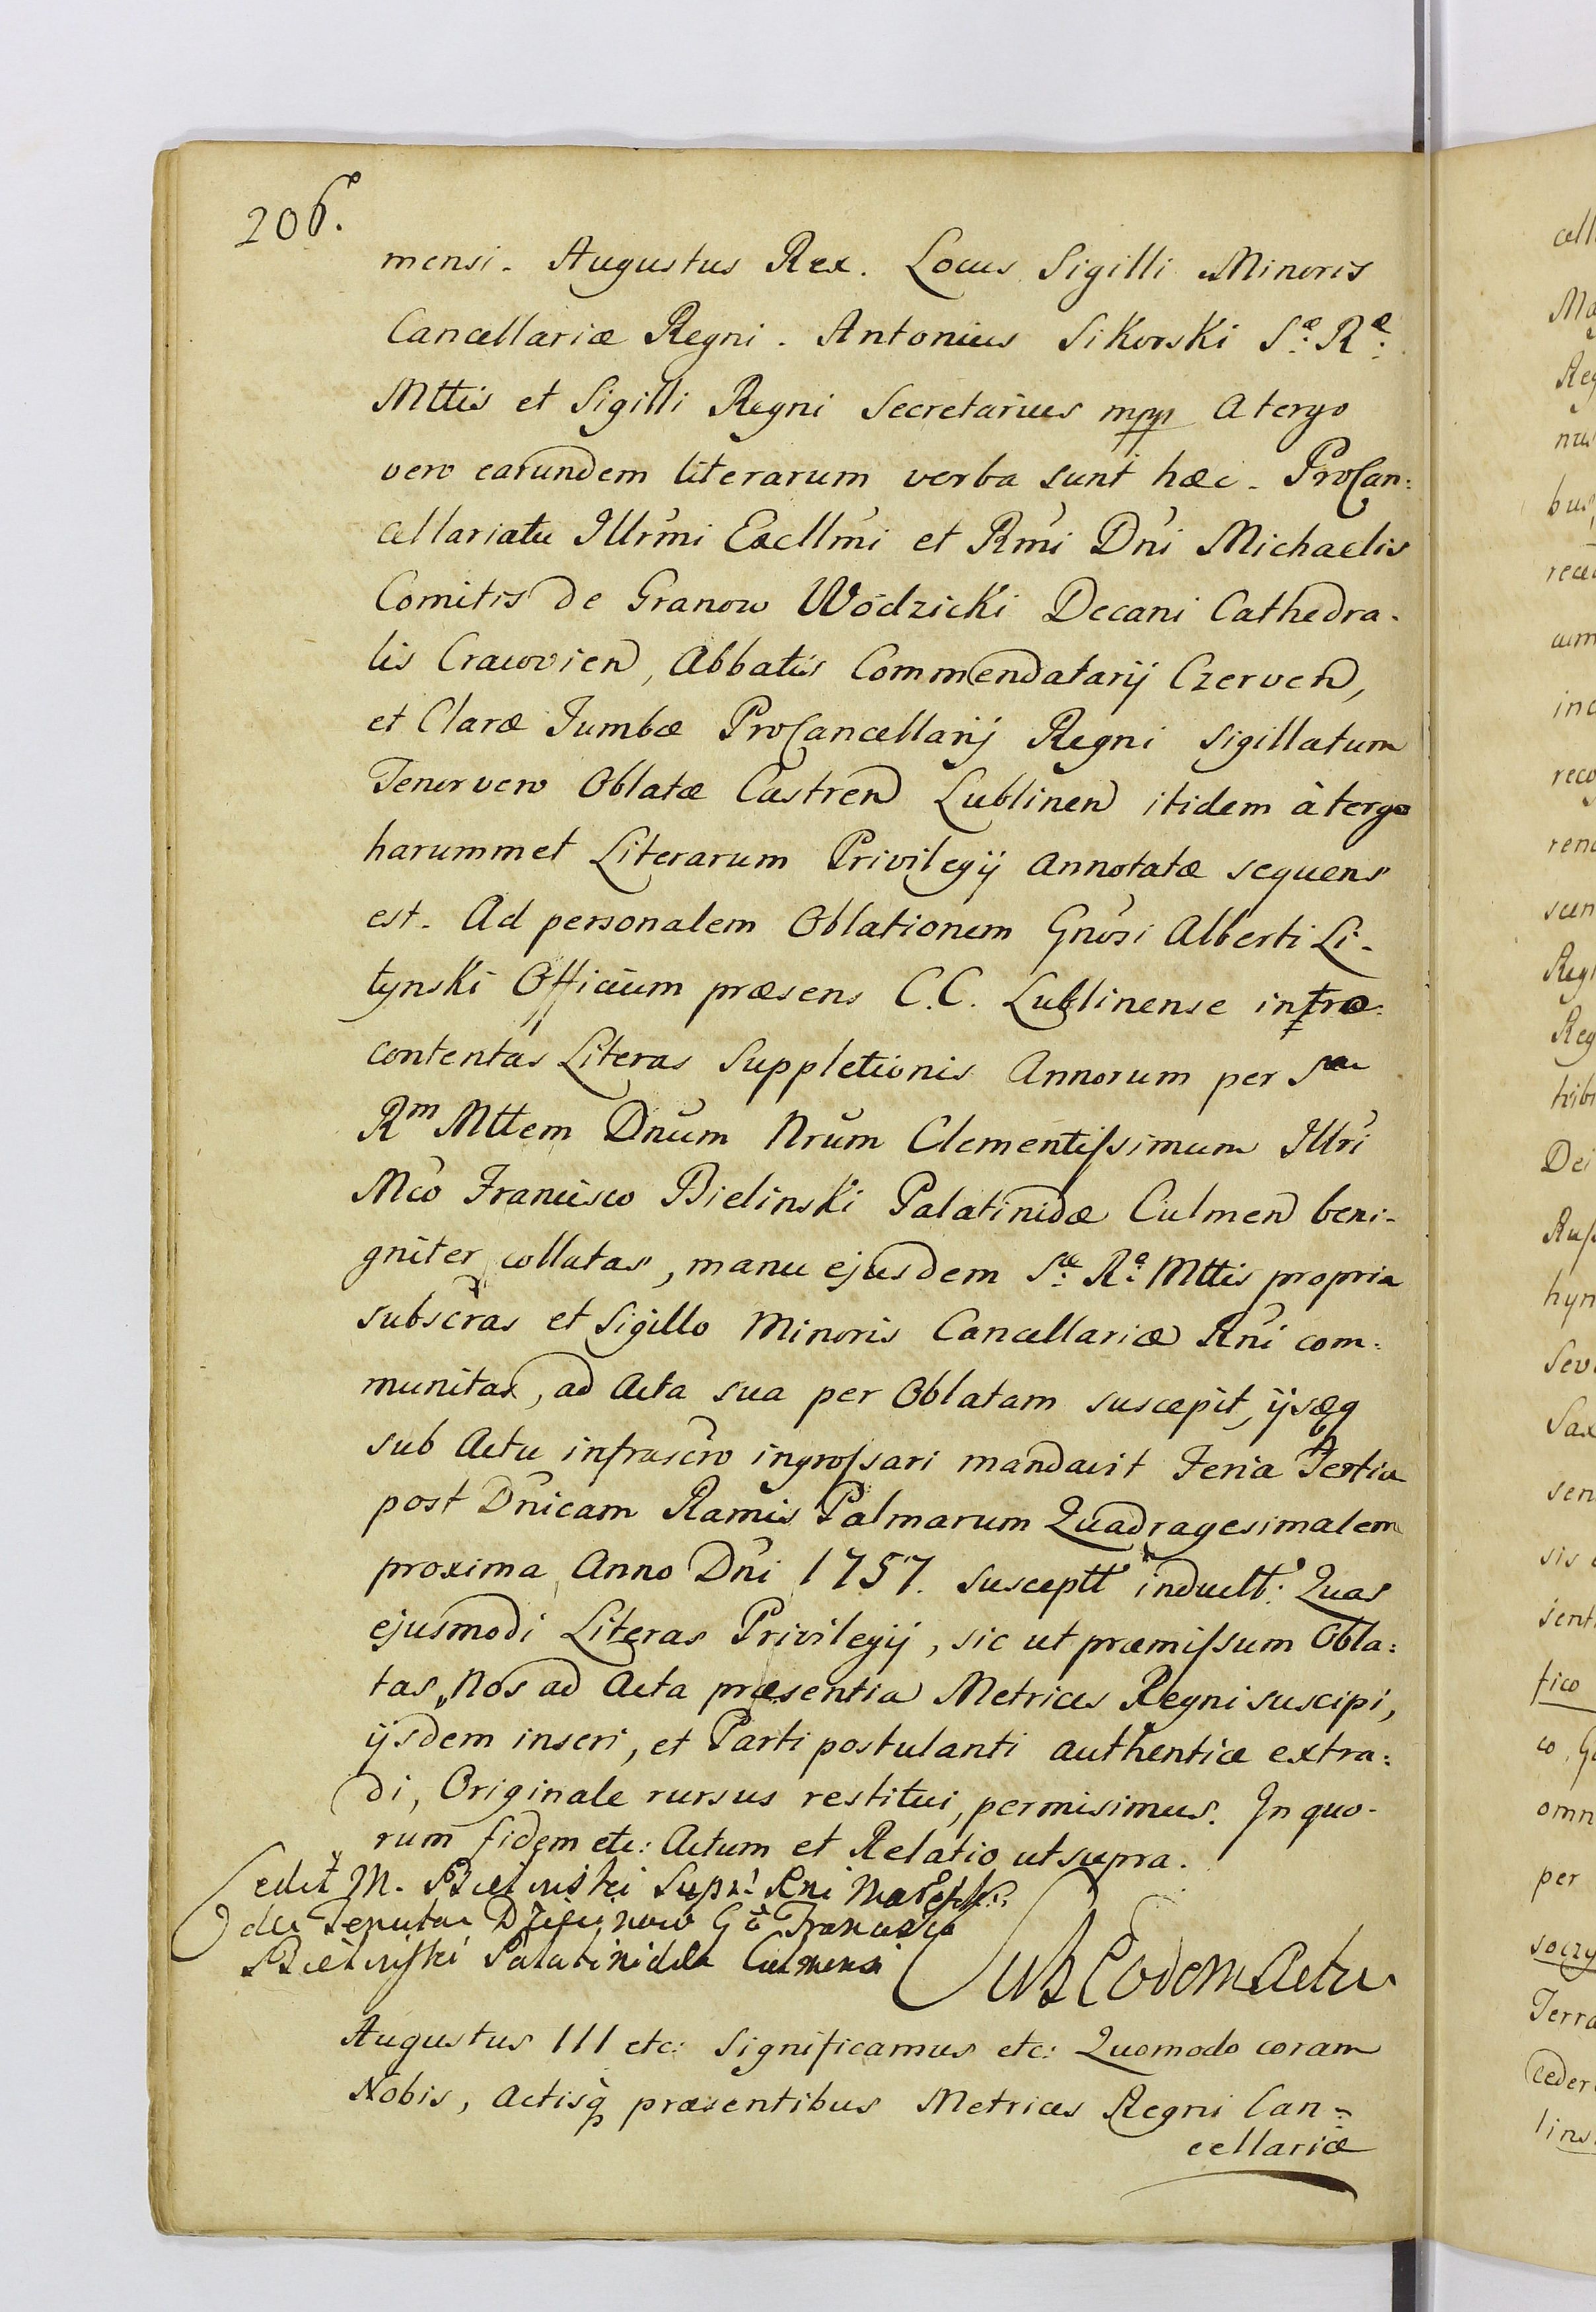 206.
mensi. Augustus Rex. Locus Sigilli Minoris
Cancellariæ Regni. Antonius Sikorski Sæ: Ræ:
Mttis et Sigilli Regni Secretarius mpp A tergo
vero earundem literarum verba sunt hæc. ProCan:
cellariatu Illrmi Excllmi et Rmi Dni Michaelis
Comitis de Granow Wodzicki Decani Cathedra-
lis Cracovien, Abbatis Commendatarij Czerven,
et Claræ Tumbæ ProCancellarij Regni sigillatum
Tenor vero Oblatæ Castren Lublinen itidem à tergo
harummet Literarum Privilegij annotatæ sequens
est. Ad personalem Oblationem Gnosi Alberti Li-
tynski Officium præsens C.C. Lublinense intro:
contentas Literas Suppletionis Annorum per Sam
Rm Mttem Dnum Nrum Clementissimum Illri
Mco Francisco Bielinski Palatinidæ Culmen beni-
gniter collatas, manu ejusdem Sæ: Ræ: Mttis propria
subscras et Sigillo Minoris Cancellariæ Rni com:
munitas, ad Acta sua per Oblatam suscepit, ijsq
sub Actu infrascro ingrossari mandavit Feria Tertia
post Dnicam Ramis Palmarum Quadragesimalem
proxima Anno Dni 1757. susceptt inductt: Quas
ejusmodi Literas Privilegij, sic ut præmissum Obla:
tas, Nos ad Acta præsentia Metrices Regni suscipi,
ijsdem inseri, et Parti postulanti authentice extra:
di, Originale rursus restitui, permisimus. In quo-
rum fidem etc: Actum et Relatio ut supra.
Cedit M. Bielinski Supr: Rni Mareschs:
de Tenuta Francisco
Bielinski Palatinidæ Culmensi
Sub Eodem Actu
Augustus III etc: Significamus etc: Quomodo coram
Nobis, Actisq præsentibus Metrices Regni Can=
cellariæ